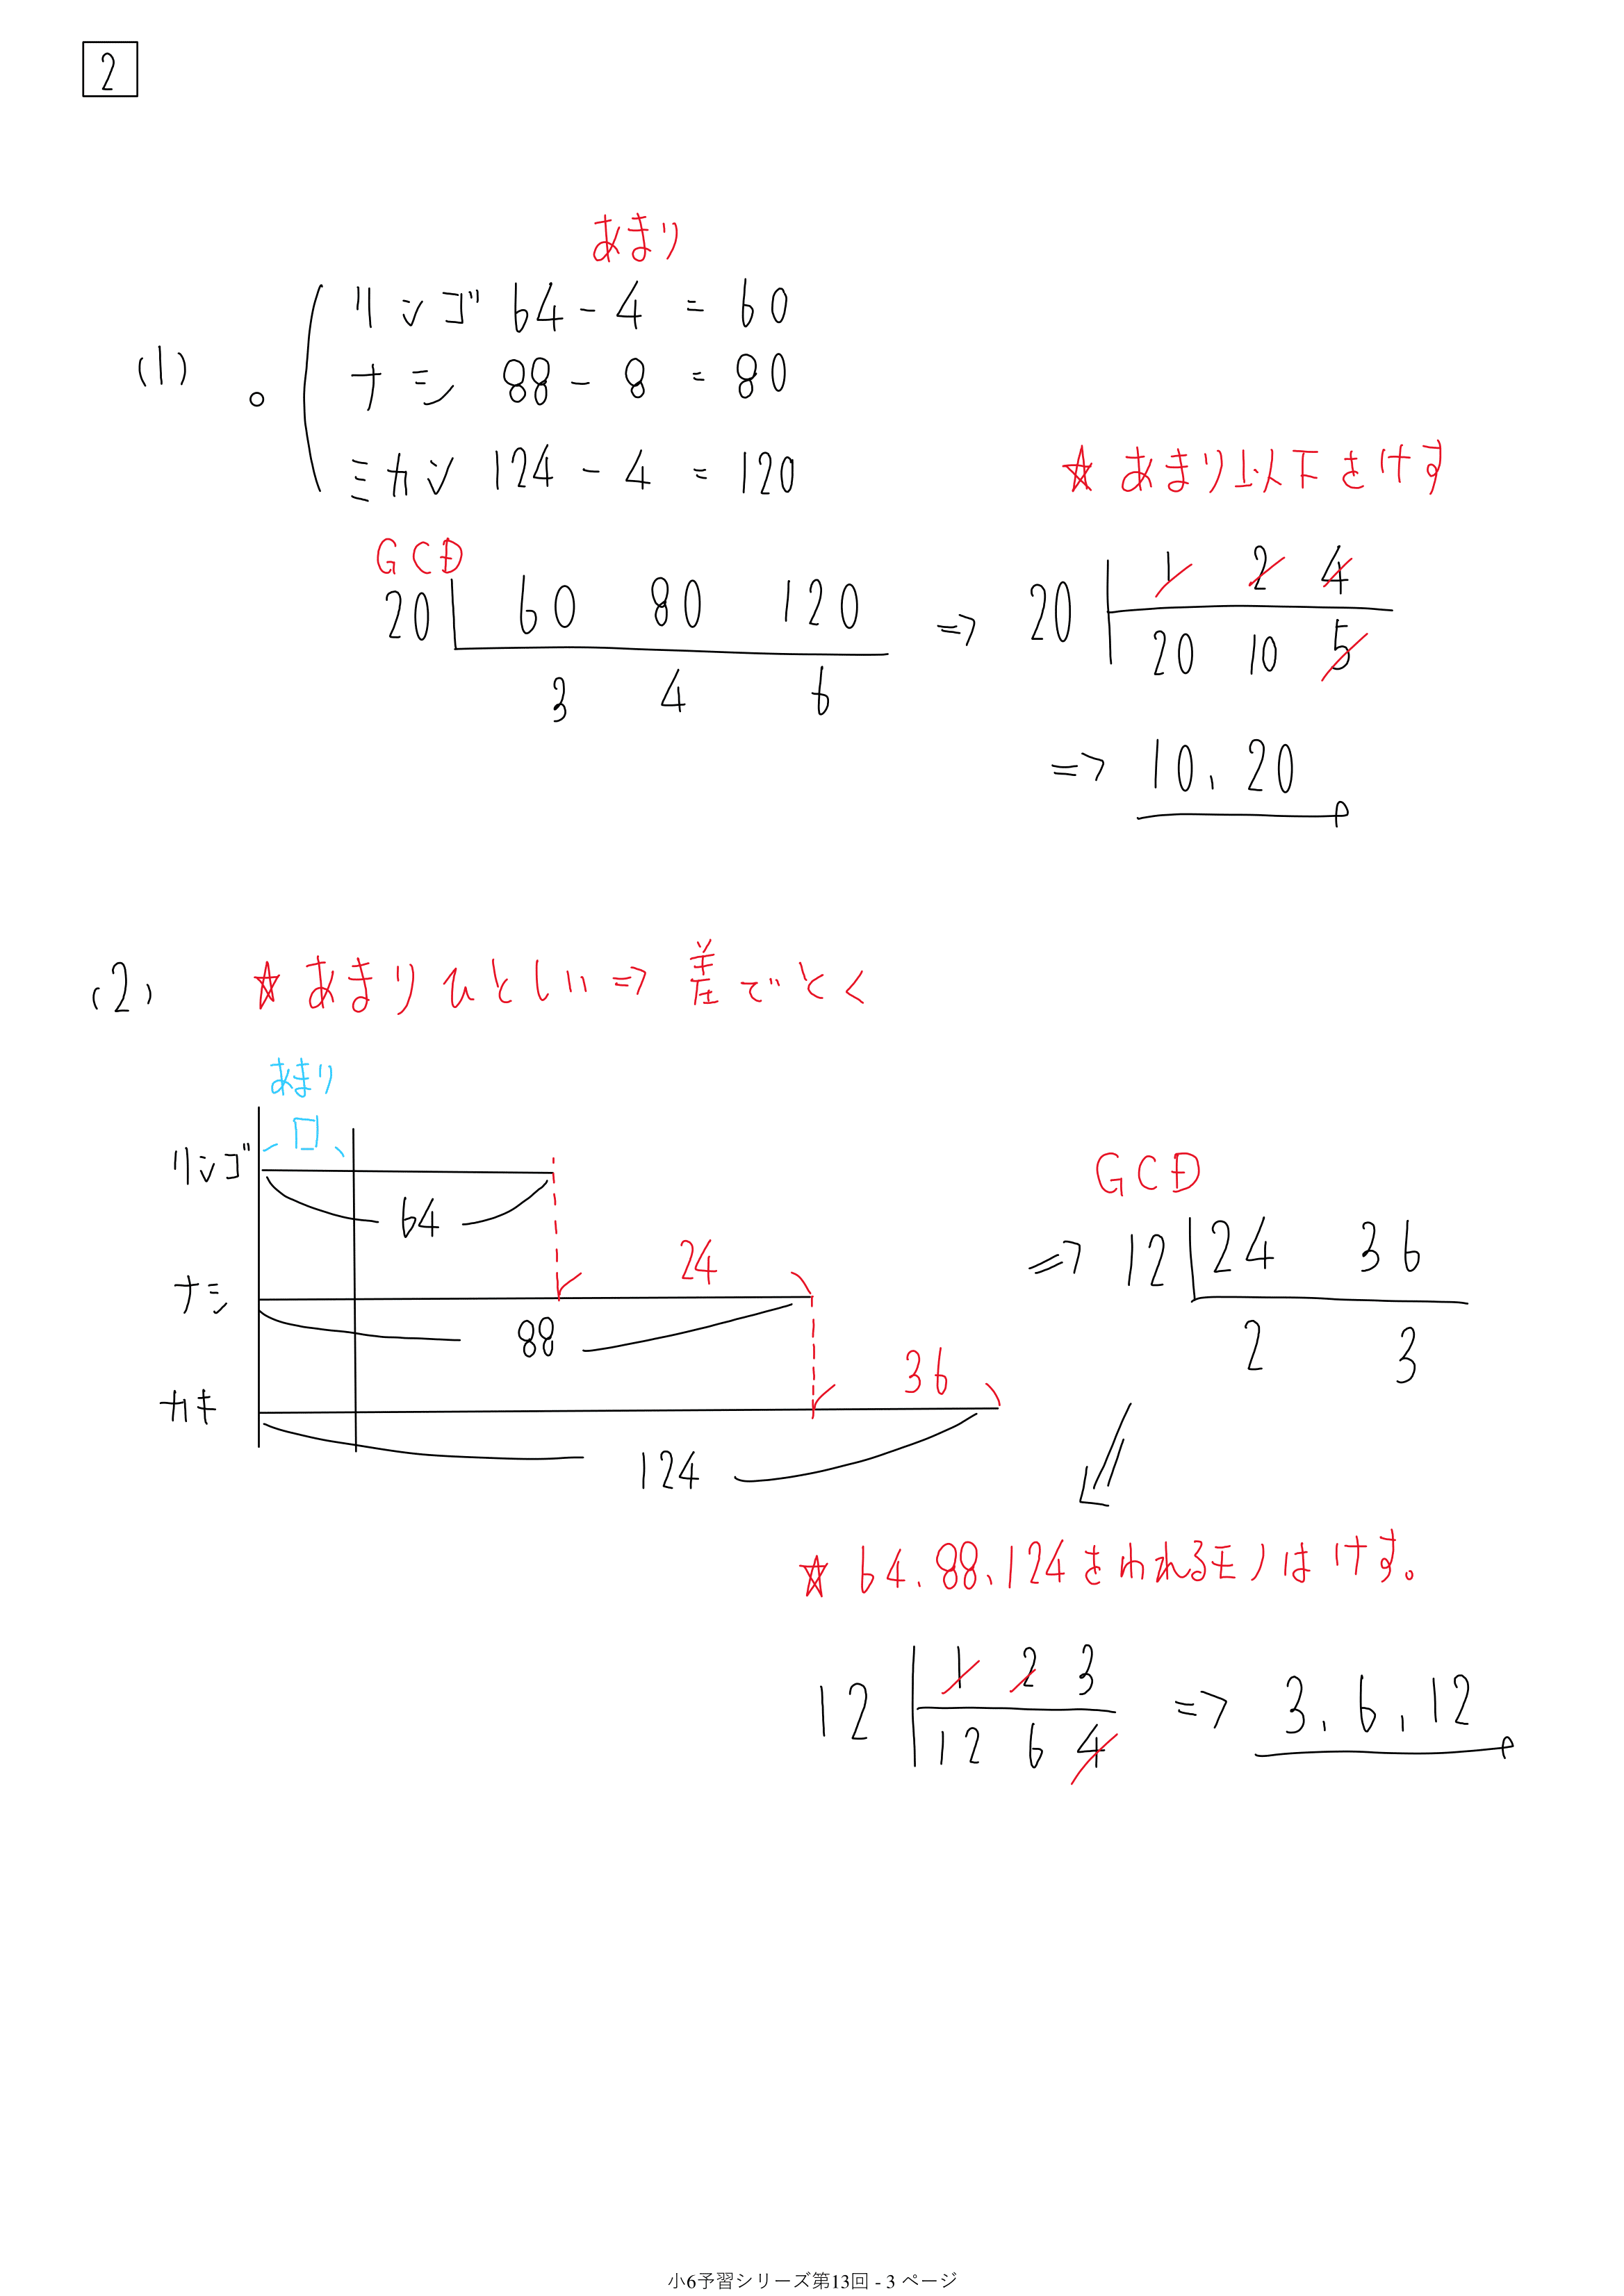 2
あまり
(1) 。 リンゴ 64 - 4 = 60
ナシ 88 - 8 = 80
ミカン 124 - 4 = 120
★ あまり以下をけす
GCD
20 60 80 120
3 4 6
⇒ 20 1 2 4
20 10 5
⇒ 10, 20
(2) ★ あまりひとしい ⇒ 差でとく
あまり
□
リンゴ
64
24
ナシ
88
36
カキ
124
GCD
⇒ 12 24 36
2 3
★ 64, 88, 124をわれるモノはけす。
12 1 2 3
12 6 4
⇒ 3, 6, 12
小6予習シリーズ第13回 - 3 ページ